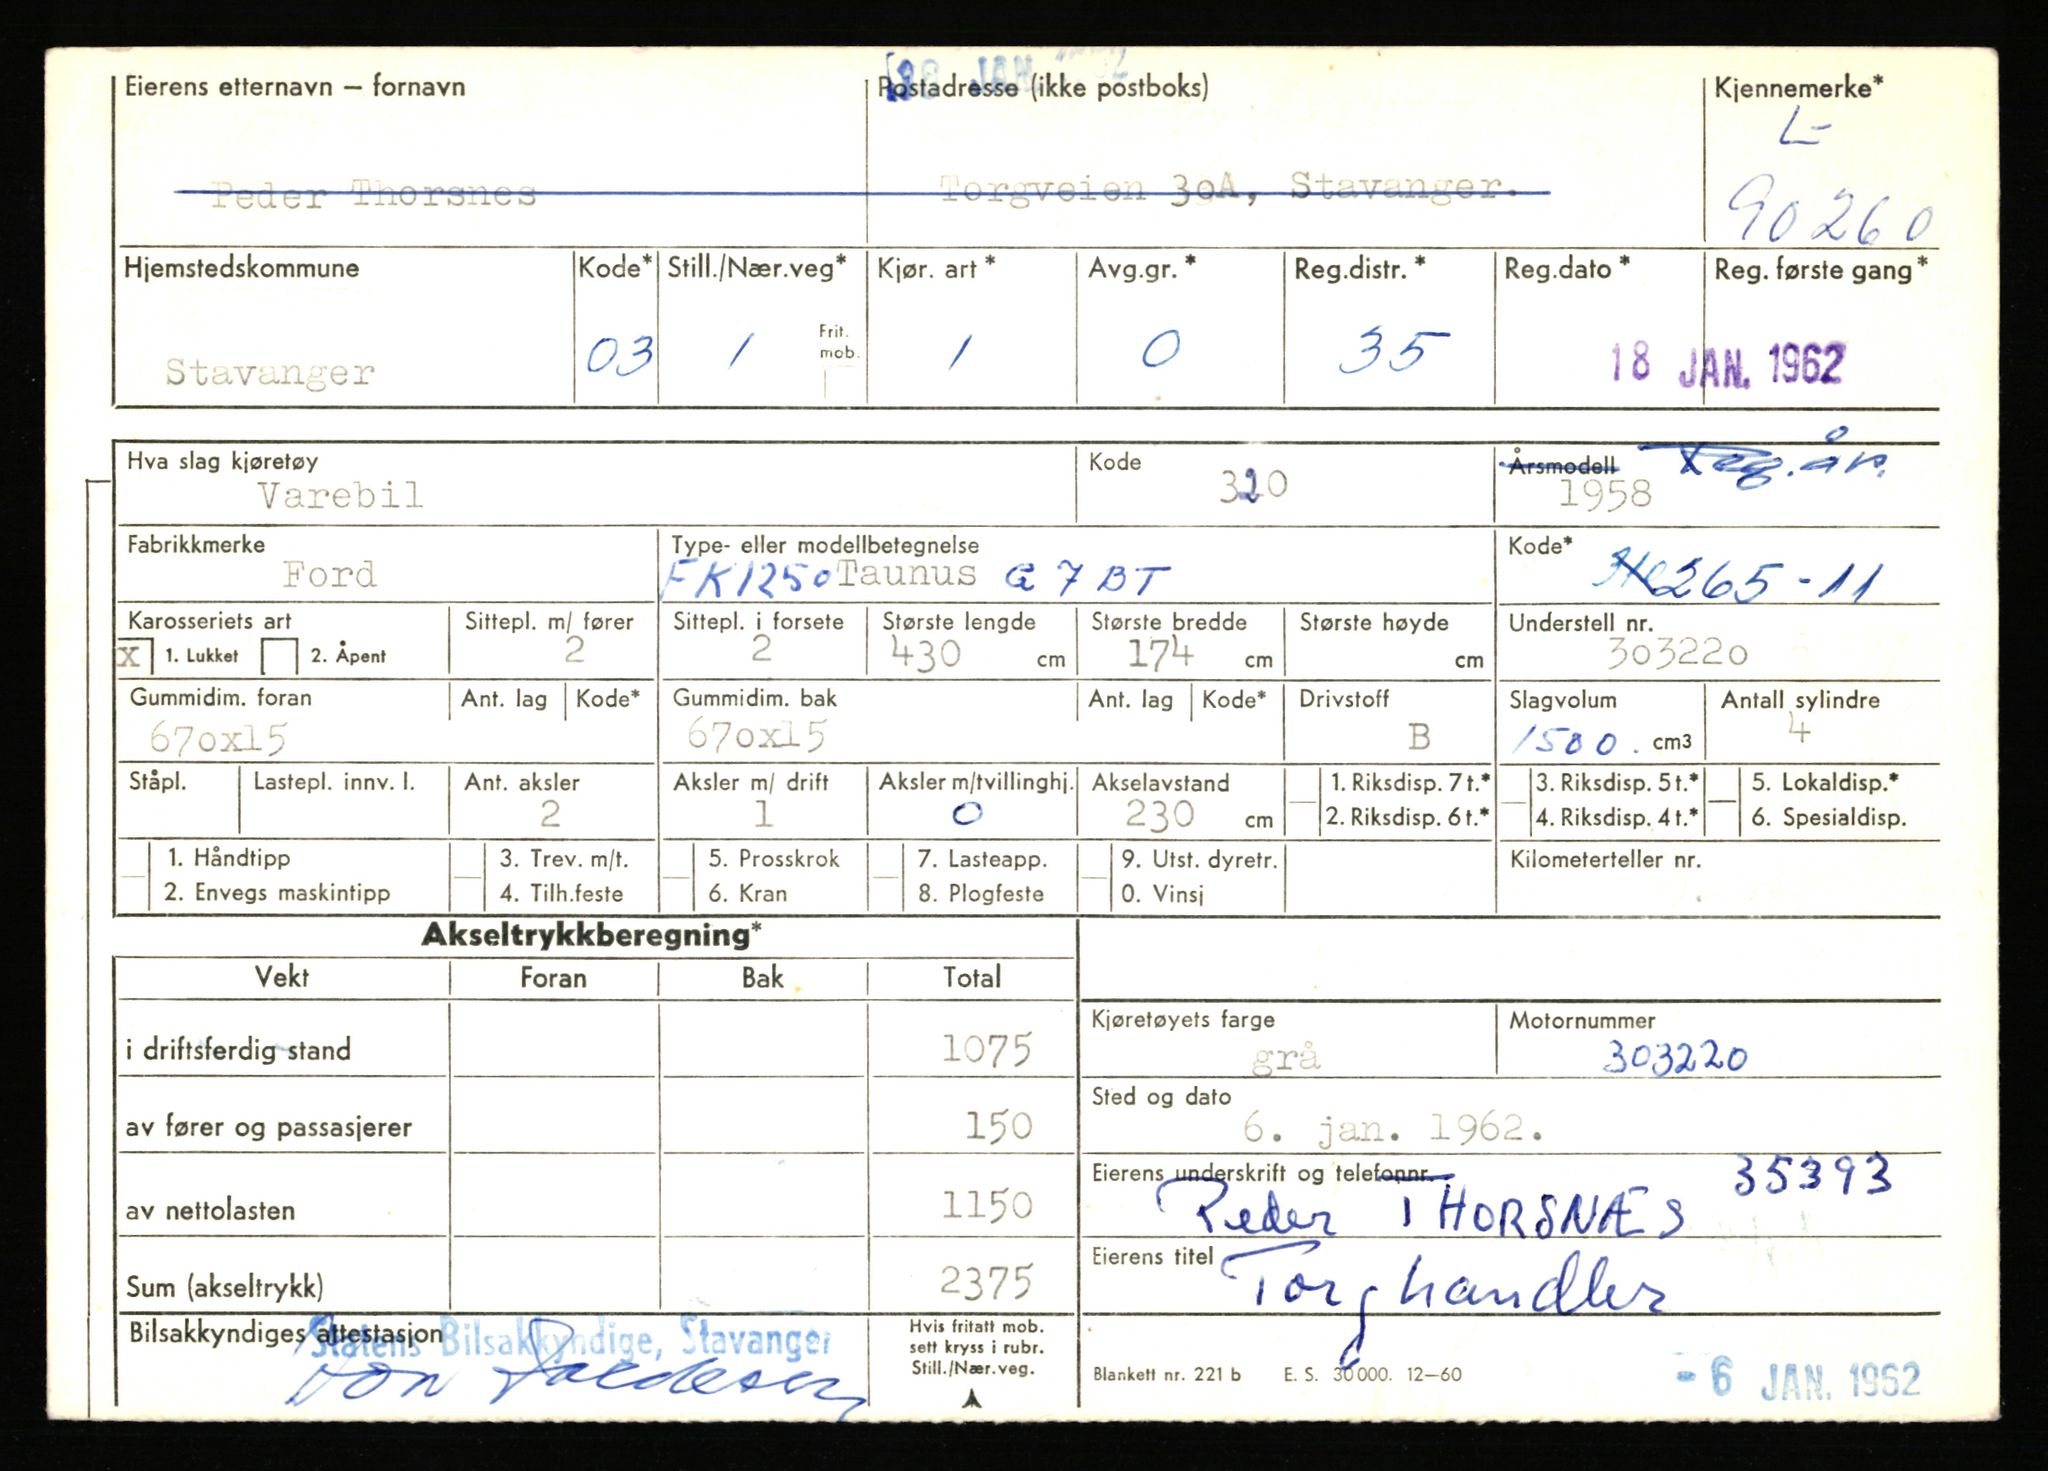 Eierens etternavn – fornavn
Postadresse (ikke postboks)
Kjennemerke*
L-
90260
Peder Thorsnes
Torgveien 30A, Stavanger.
Hjemstedskommune
Kode*
Still./Nær.veg*
Kjør. art *
Avg.gr. *
Reg.distr. *
Reg.dato *
Reg. første gang*
Stavanger
03
1
Frit. mob.
1
0
35
18 JAN. 1962
Hva slag kjøretøy
Kode
Årsmodell
Reg. år.
Varebil
320
1958
Fabrikkmerke
Type- eller modellbetegnelse
Kode*
Ford
FK1250 Taunus G 7 BT
265-11
Karosseriets art
Sittepl. m/ fører
Sittepl. i forsete
Største lengde
Største bredde
Største høyde
Understell nr.
X 1. Lukket 2. Åpent
2
2
430 cm
174 cm
cm
303220
Gummidim. foran
Ant. lag
Kode*
Gummidim. bak
Ant. lag
Kode*
Drivstoff
Slagvolum
Antall sylindre
670x15
670x15
B
1500. cm3
4
Ståpl.
Lastepl. innv. l.
Ant. aksler
Aksler m/ drift
Aksler m/tvillinghj.
Akselavstand
1. Riksdisp. 7 t.*
3. Riksdisp. 5 t.*
5. Lokaldisp.*
2
1
0
230 cm
2. Riksdisp. 6 t.*
4. Riksdisp. 4 t.*
6. Spesialdisp.
1. Håndtipp
3. Trev. m/t.
5. Prosskrok
7. Lasteapp.
9. Utst. dyretr.
Kilometerteller nr.
2. Envegs maskintipp
4. Tilh.feste
6. Kran
8. Plogfeste
0. Vinsj
Akseltrykkberegning*
Vekt
Foran
Bak
Total
i driftsferdig stand
1075
Kjøretøyets farge
Motornummer
grå
303220
av fører og passasjerer
150
Sted og dato
6. jan. 1962.
av nettolasten
1150
Eierens underskrift og telefonnr.
35393
Peder THORSNÆS
Sum (akseltrykk)
2375
Eierens titel
Torghandler
Bilsakkyndiges attestasjon
Statens Bilsakkyndige, Stavanger
Hvis fritatt mob.
sett kryss i rubr.
Still./Nær.veg.
Blankett nr. 221 b
E. S. 30 000. 12–60
- 6 JAN. 1962